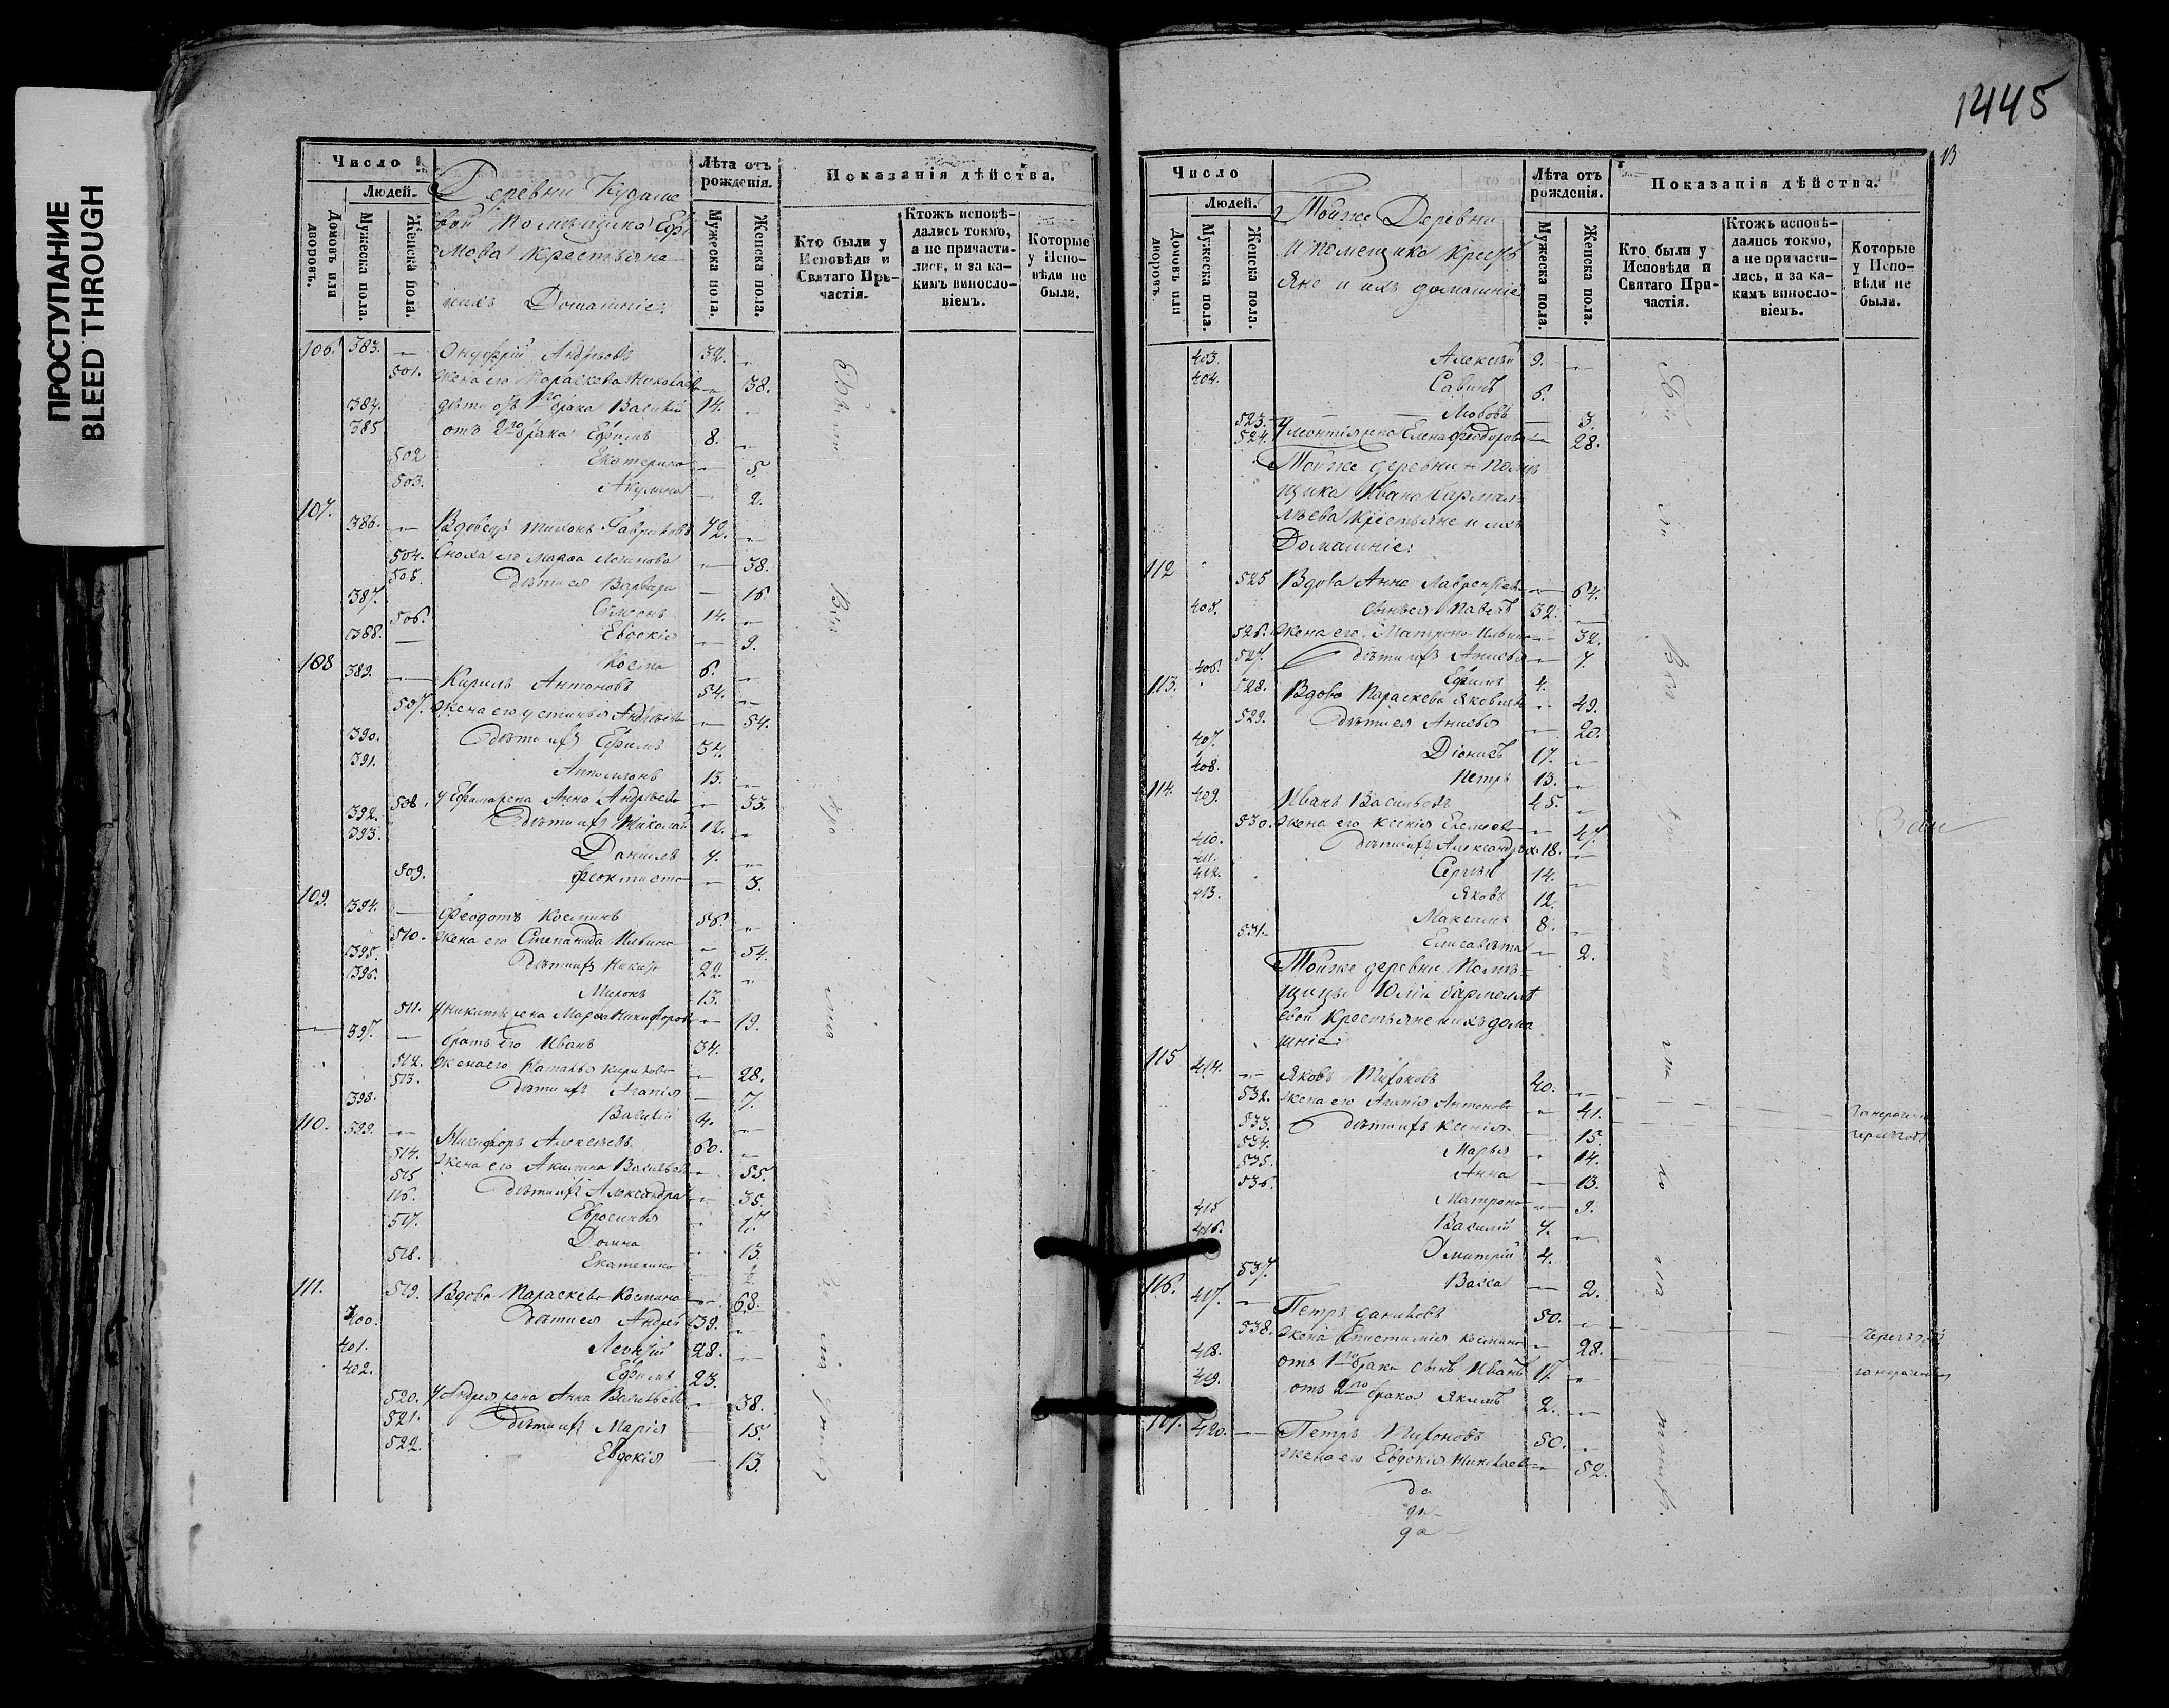 ПРОСТУПАНИЕ
BLEED THROUGH
1445
Число
Людей.
Домовъ или дворовъ.
Мужеска пола.
Женска пола.
Деревни Кудаше
вой помѣщика Ефи
мова крестьяне
и ихъ Домашніе:
Лѣта отъ рожденія.
Мужеска пола.
Женска пола.
Показанія дѣйства.
Кто были у Исповѣди и Святаго При-частія.
Ктожъ исповѣ-дались токмо, а не причасти-лись, и за ка-кимъ винословіемъ.
Которые у Испо-вѣди не были.
106. 383. Онуфрій Андреевъ 32.
501. жена его Параскева Николаева 38.
384. дѣти отъ 1го брака Василій 14.
385 отъ 2го брака Ефимъ 8.
502 Екатерина 5.
503. Акулина 2.
107. 386. Вдовецъ Тихонъ Гавриловъ 72.
504. Сноха его Марѳа Логинова 38.
505. Дѣти ея Варвара 16
387. Симеонъ 14.
506. Евдокія 9.
388. Косма 6.
108 389. Кирилъ Антоновъ 54.
507. жена его Устинья Андреева 54.
390. Дѣти ихъ Ефимъ 34.
391. 15.
508. У Ефима жена Анна Андреева 33.
392. Дѣти ихъ Николай 12.
393. Даніилъ 7.
509. Феоктиста 3.
109. 394. Феодотъ Косминъ 56.
510. жена его Степанида Ильина 54.
395. Дѣти ихъ Никита 22.
396. Миронъ 13.
511. У Никиты жена Марѳа Никифорова 19.
397. братъ его Иванъ 34.
512. жена его Наталья Кирилова 28.
513. Дѣти ихъ Агапія 7.
398. Василій 4.
110. 399. Никифоръ Алексѣевъ 60.
514. жена его Акилина Васильева 55.
515 Дѣти ихъ Александра 35.
516. Евросинья 17.
517. Домна 13.
518. Екатерина
111. 519. Вдова Параскева Космина 68.
400. Дѣти ея Андрей 39.
401. Леонтій 28.
402. Ефимъ 23.
520. У Андрея жена Анна Васильева 38.
521. Дѣти ихъ Марія 15.
522. Евдокія 13.
Число
Людей.
Домовъ или дворовъ.
Мужеска пола.
Женска пола.
Тойже Деревни
и помещика крестъ
яне и ихъ домашніе
Лѣта отъ рожденія.
Мужеска пола.
Женска пола.
Показанія дѣйства.
Кто были у Исповѣди и Святаго При-частія.
Ктожъ исповѣ-дались токмо, а не причасти-лись, и за ка-кимъ винословіемъ.
Которые у Испо-вѣди не были.
403. Алексѣй 9.
404. Савинъ 6.
523. Любовь 3.
524. У Леонтія жена Елена Феодорова 28.
Тойже деревни помѣ
щика Ивана
крестьяне и ихъ
Домашніе:
112 525 Вдова Анна Лаврентіева 64.
405. сынъ ея Павелъ 32.
526. жена его Матрона Ильина 32.
527. Дѣти ихъ Анисья 7.
406. Ефимъ 4.
113. 528. Вдова Параскева Яковлева 49.
529. Дѣти ея Анисья 20.
407. Діонисъ 17.
408. Петръ 13.
114. 409. Иванъ Васильевъ 45.
530. жена его Ксенія Елисеева 47.
410. Дѣти ихъ Александръ 18.
411. Сергѣй 14.
412. Яковъ 12.
413. Максимъ 8.
531. Елисавета 2.
Тойже деревни Помѣ-
щицы Юліи
крестьяне и ихъ дома
шніе:
115 414. Яковъ Тихоновъ 40.
532. жена его Агапія Антонова 41.
533. Дѣти ихъ Ксенія 15.
534. Марья 14.
535. Анна 13.
536. Матрона 9.
415 Василій 7.
416. Дмитрій 4.
537. Васса 2.
116. 417. Петръ Даниловъ 50.
538. жена Епистимія Космина 28.
418. отъ 1го брака сынъ Иванъ 17.
419. отъ 2го брака Якимъ 2.
117. 420. Петръ Тихоновъ 50.
жена его Евдокія Николаева 52.
да
да
да